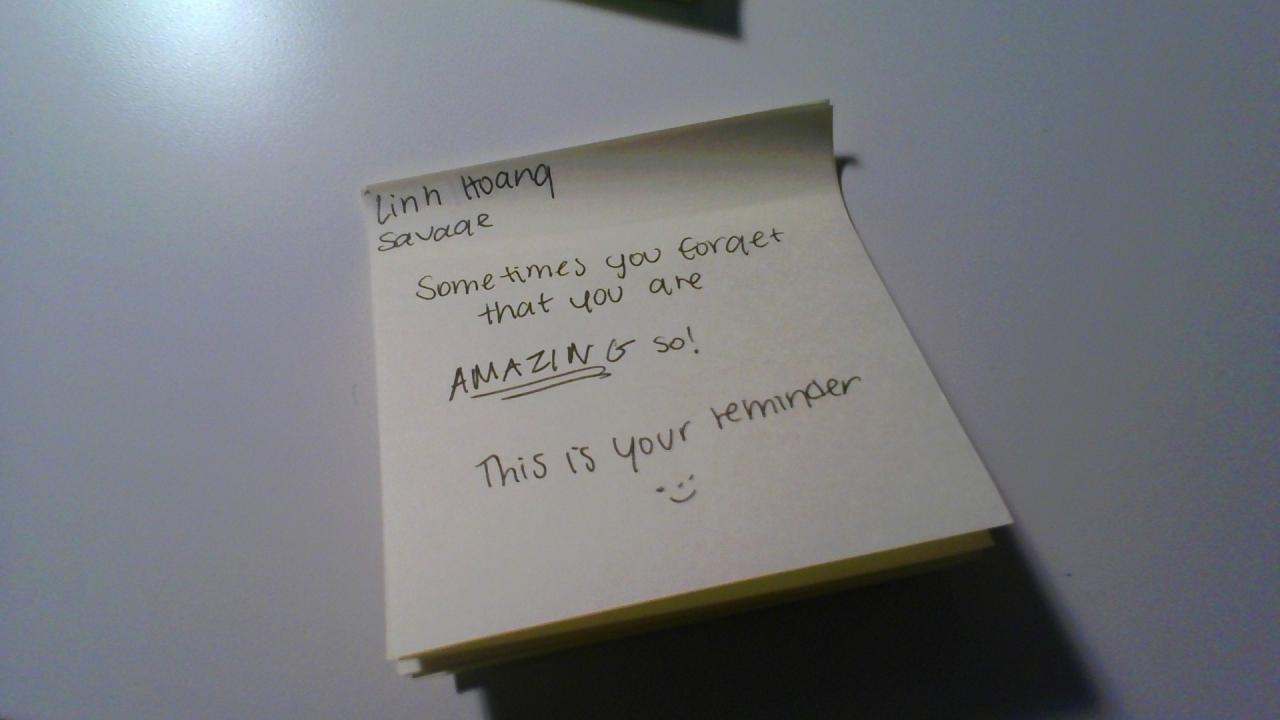 Linh Hoang
Savage
Sometimes you forget
that you are
AMAZING so!
This is your reminder